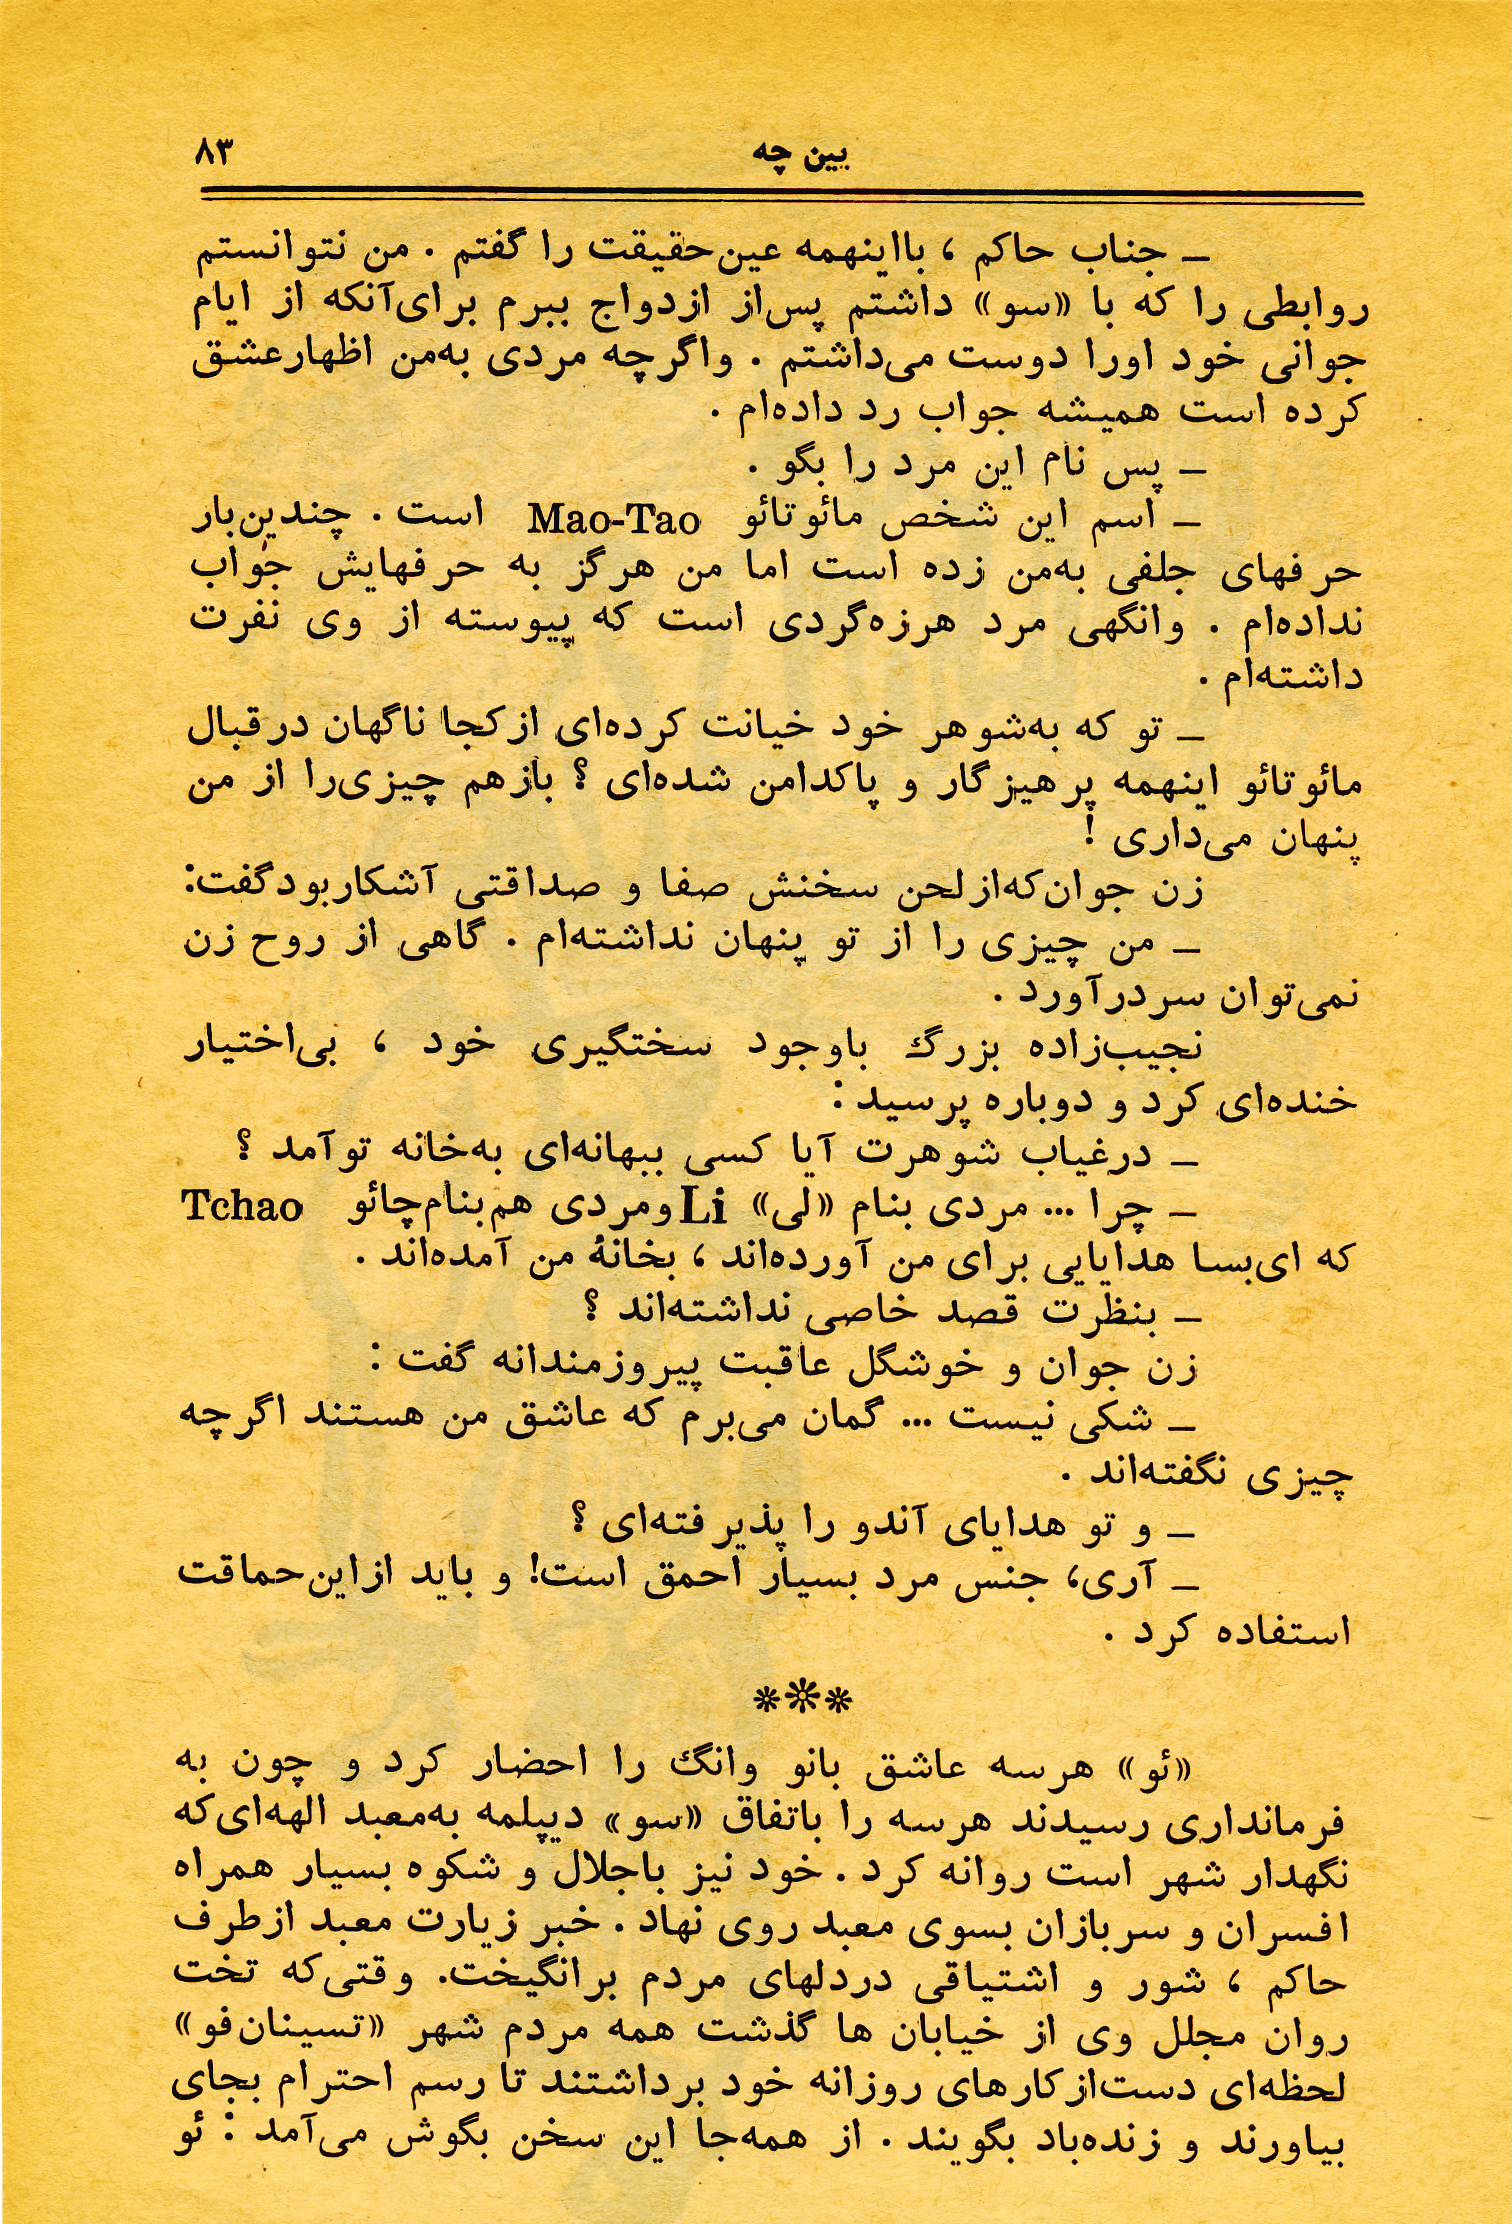 بین چه ۸۳
ــ جناب حاکم ، بااینهمه عین‌حقیقت را گفتم . من نتوانستم
روابطی را که با «سو» داشتم پس‌از ازدواج ببرم برای‌آنکه از ایام
جوانی خود اورا دوست می‌داشتم . واگرچه مردی به‌من اظهارعشق
کرده است همیشه جواب رد داده‌ام .
ــ پس نام این مرد را بگو .
ــ اسم این شخص مائوتائو Mao-Tao است . چندین‌بار
حرفهای جلفی به‌من زده است اما من هرگز به حرفهایش جواب
نداده‌ام . وانگهی مرد هرزه‌گردی است که پیوسته از وی نفرت
داشته‌ام .
ــ تو که به‌شوهر خود خیانت کرده‌ای ازکجا ناگهان درقبال
مائوتائو اینهمه پرهیزگار و پاکدامن شده‌ای ؟ بازهم چیزی‌را از من
پنهان می‌داری !
زن جوان‌که‌ازلحن سخنش صفا و صداقتی آشکاربودگفت:
ــ من چیزی را از تو پنهان نداشته‌ام . گاهی از روح زن
نمی‌توان سردرآورد .
نجیب‌زاده بزرگ باوجود سختگیری خود ، بی‌اختیار
خنده‌ای کرد و دوباره پرسید :
ــ درغیاب شوهرت آیا کسی ببهانه‌ای به‌خانه توآمد ؟
ــ چرا ... مردی بنام «لی» Li ومردی هم‌بنام‌چائو Tchao
که ای‌بسا هدایایی برای من آورده‌اند ، بخانهٔ من آمده‌اند .
ــ بنظرت قصد خاصی نداشته‌اند ؟
زن جوان و خوشگل عاقبت پیروزمندانه گفت :
ــ شکی نیست ... گمان می‌برم که عاشق من هستند اگرچه
چیزی نگفته‌اند .
ــ و تو هدایای آندو را پذیرفته‌ای ؟
ــ آری، جنس مرد بسیار احمق است! و باید ازاین‌حماقت
استفاده کرد .
***
«ئو» هرسه عاشق بانو وانگ را احضار کرد و چون به
فرمانداری رسیدند هرسه را باتفاق «سو» دیپلمه به‌معبد الهه‌ای‌که
نگهدار شهر است روانه کرد . خود نیز باجلال و شکوه بسیار همراه
افسران و سربازان بسوی معبد روی نهاد . خبر زیارت معبد ازطرف
حاکم ، شور و اشتیاقی دردلهای مردم برانگیخت. وقتی‌که تخت
روان مجلل وی از خیابان ها گذشت همه مردم شهر «تسینان‌فو»
لحظه‌ای دست‌ازکارهای روزانه خود برداشتند تا رسم احترام بجای
بیاورند و زنده‌باد بگویند . از همه‌جا این سخن بگوش می‌آمد : ئو